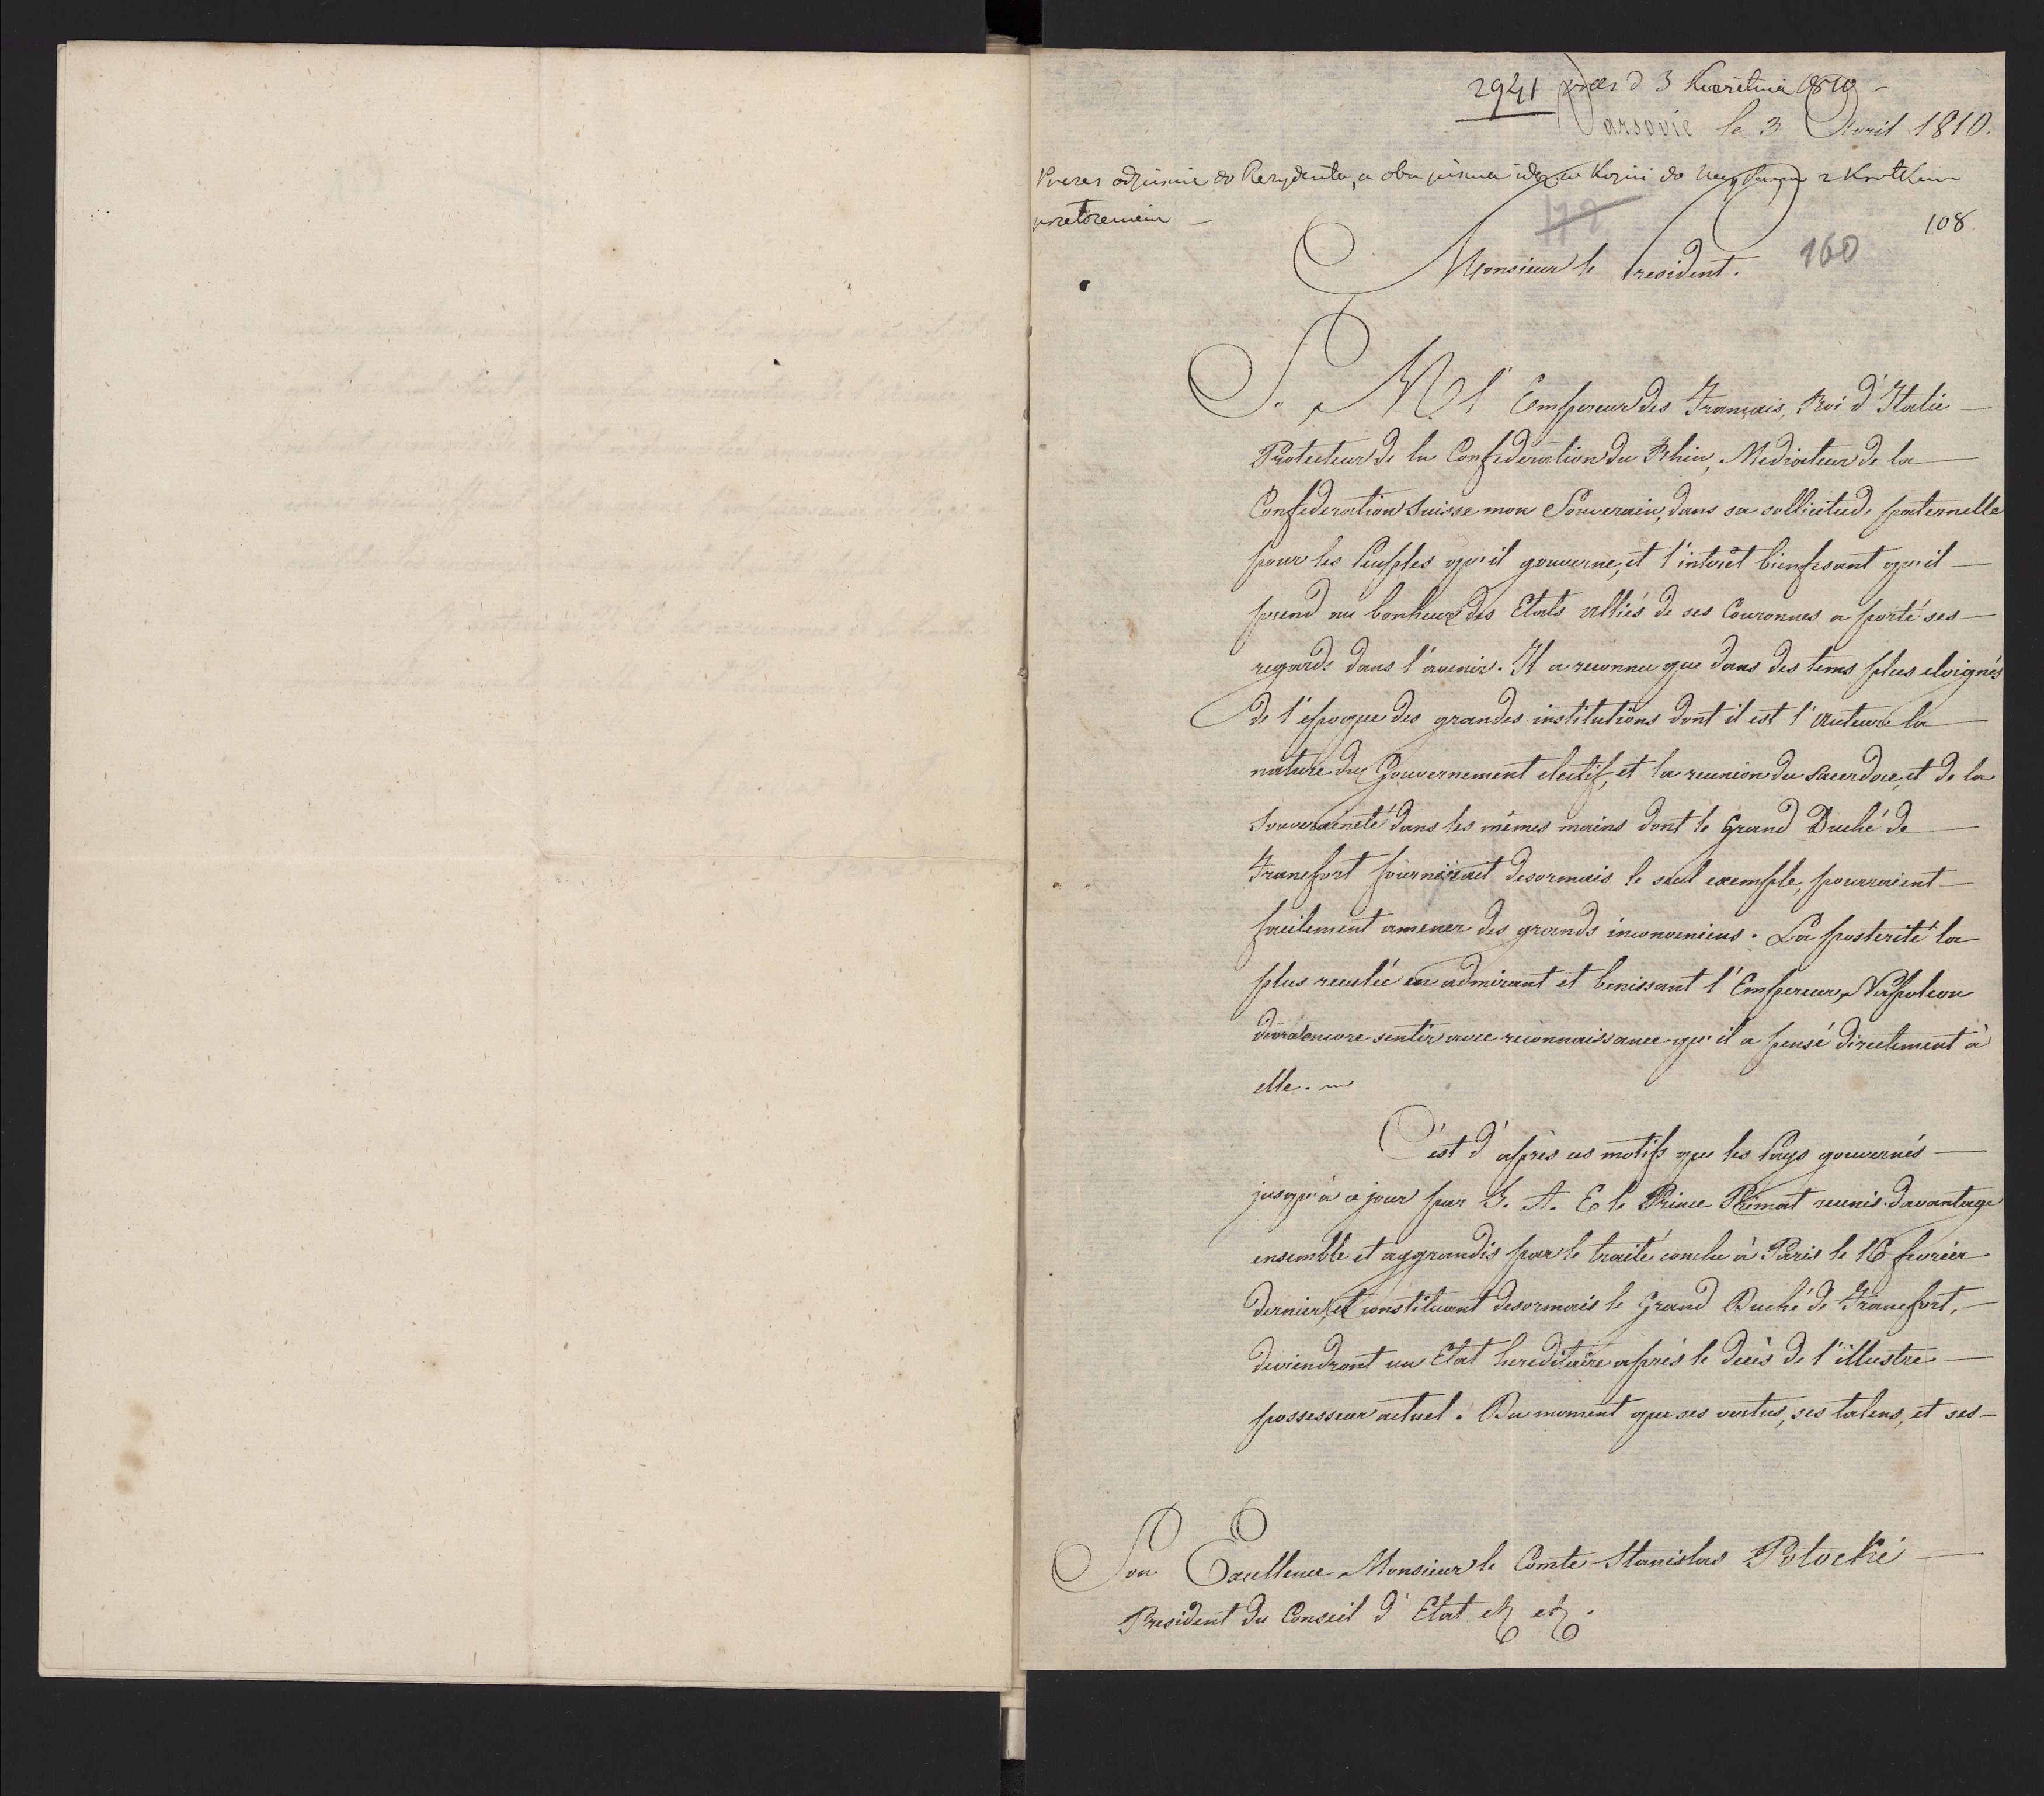 2941 præs d 3 Kwietnia 1810 -
Varsovie le 3 Avril 1810.
Prezes odpisuie do Rezydenta, a oba pisma idą w Kopii do z Krotkim
108
160
Monsieur le President.
S. M. l'Empereur des Français, Roi d'Italie
Protecteur de la Confederation du Rhin, Mediateur de la
Confederation Suisse mon Souverain, dans sa sollicitude paternelle
pour les Peuples qu'il gouverne, et l'interêt bienfesant qu'il
prend au bonheur des Etats alliés de ses Couronnes a porté ses
regards dans l'avenir. Il a reconnu que dans des tems plus eloignés
de l'epoque des grandes institutions dont il est l'auteur la
nature du Gouvernement electif, et la reunion du sacerdoce, et de la
Souveraineté dans les mêmes mains dont le Grand Duché de
Francfort fournirait desormais le seul exemple, pourraient
facilement amener des grands inconveniens. La posterité la
plus reculée en admirant et benissant l'Empereur Napoleon
devra encore sentir avec reconnaissance qu'il a pensé directement à
elle.
C'est d'après ces motifs que les Pays gouvernés
jusqu'à ce jour par S. A. E le Prince Primat reunis davantage
ensemble et aggrandis par le traité conclu à Paris le 16 fevrier
dernier, et constituant desormais le Grand Duché de Francfort,
deviendront un Etat hereditaire après le decès de l'illustre
possesseur actuel. Du moment que ses vertus, ses talens, et ses
Son Excellence Monsieur le Comte Stanislas Potocki
President du Conseil d'Etat etc etc.